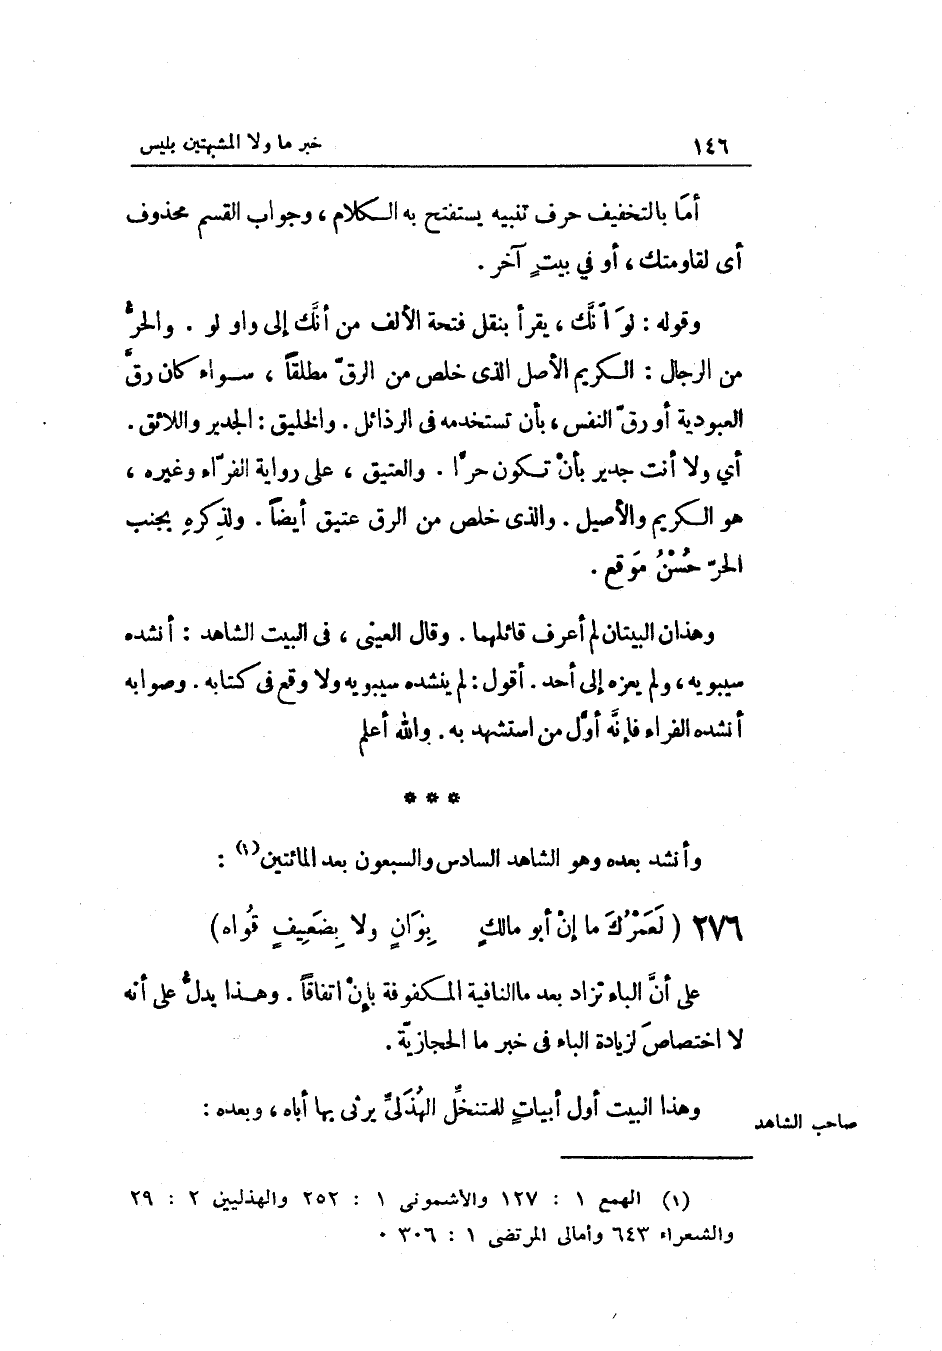 ١٤٦ خبر ما ولا المشبهتين بليس
أمَا بالتخفيف حرف تنبيه يستفتح به الكلام ، وجواب القسم محذوف
أى لقاومتك ، أو في بيتٍ آخر .
وقوله : لوَ أنَّك ، يقرأ بنقل فتحة الألف من أنَّك إلى واو لو . والحرُّ
من الرجال : الكريم الأصل الذى خلص من الرقّ مطلقاً ، سواء كان رقَّ
العبودية أو رقّ النفس ، بأن تستخدمه فى الرذائل . والخليق : الجدير واللائق .
أي ولا أنت جدير بأنْ تكون حرًّا . والعتيق ، على رواية الفرّاء وغيره ،
هو الكريم والأصيل . والذى خلص من الرق عتيق أيضاً . ولذِكرهِ بجنب
الحرّ حُسْنُ مَوقع .
وهذان البيتان لم أعرف قائلهما . وقال العينى ، فى البيت الشاهد : أنشده
سيبويه ، ولم يعزه إلى أحد . أقول : لم ينشده سيبويه ولا وقع فى كتابه . وصوابه
أنشده الفراء فإنَّه أوَّل من استشهد به . والله أعلم
* * *
وأنشد بعده وهو الشاهد السادس والسبعون بعد المائتين(١) :
٢٧٦ ( لَعَمْرُكَ ما إنْ أبو مالكٍ بِوَانٍ ولا بِضَعِيفٍ قُواه )
على أنَّ الباء تزاد بعد ما النافية المكفوفة بإنْ اتفاقاً . وهذا يدلُّ على أنه
لا اختصاصَ لزيادة الباء فى خبر ما الحجازيّة .
وهذا البيت أول أبياتٍ للمتنخِّل الهُذَلىّ يرثى بها أباه ، وبعده :
صاحب الشاهد
(١) الهمع ١ : ١٢٧ والأشمونى ١ : ٢٥٢ والهذليين ٢ : ٢٩
والشعراء ٦٤٣ وأمالى المرتضى ١ : ٣٠٦ .